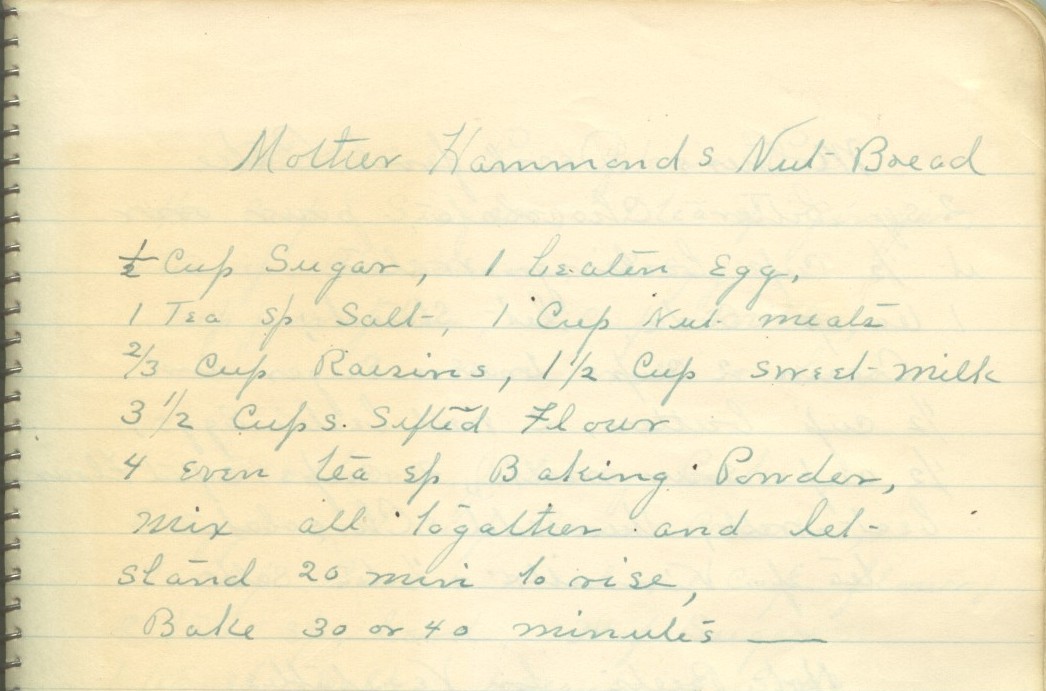 Mother Hammonds Nut Bread
½ Cup Sugar, 1 beaten Egg,
1 Tea sp Salt, 1 Cup Nut meats
2/3 Cup Raisins, 1 1/2 Cup sweet milk
3 1/2 Cups. Sifted Flour
4 even tea sp Baking Powder,
Mix all togather and let
stand 20 min to rise,
Bake 30 or 40 minutes —